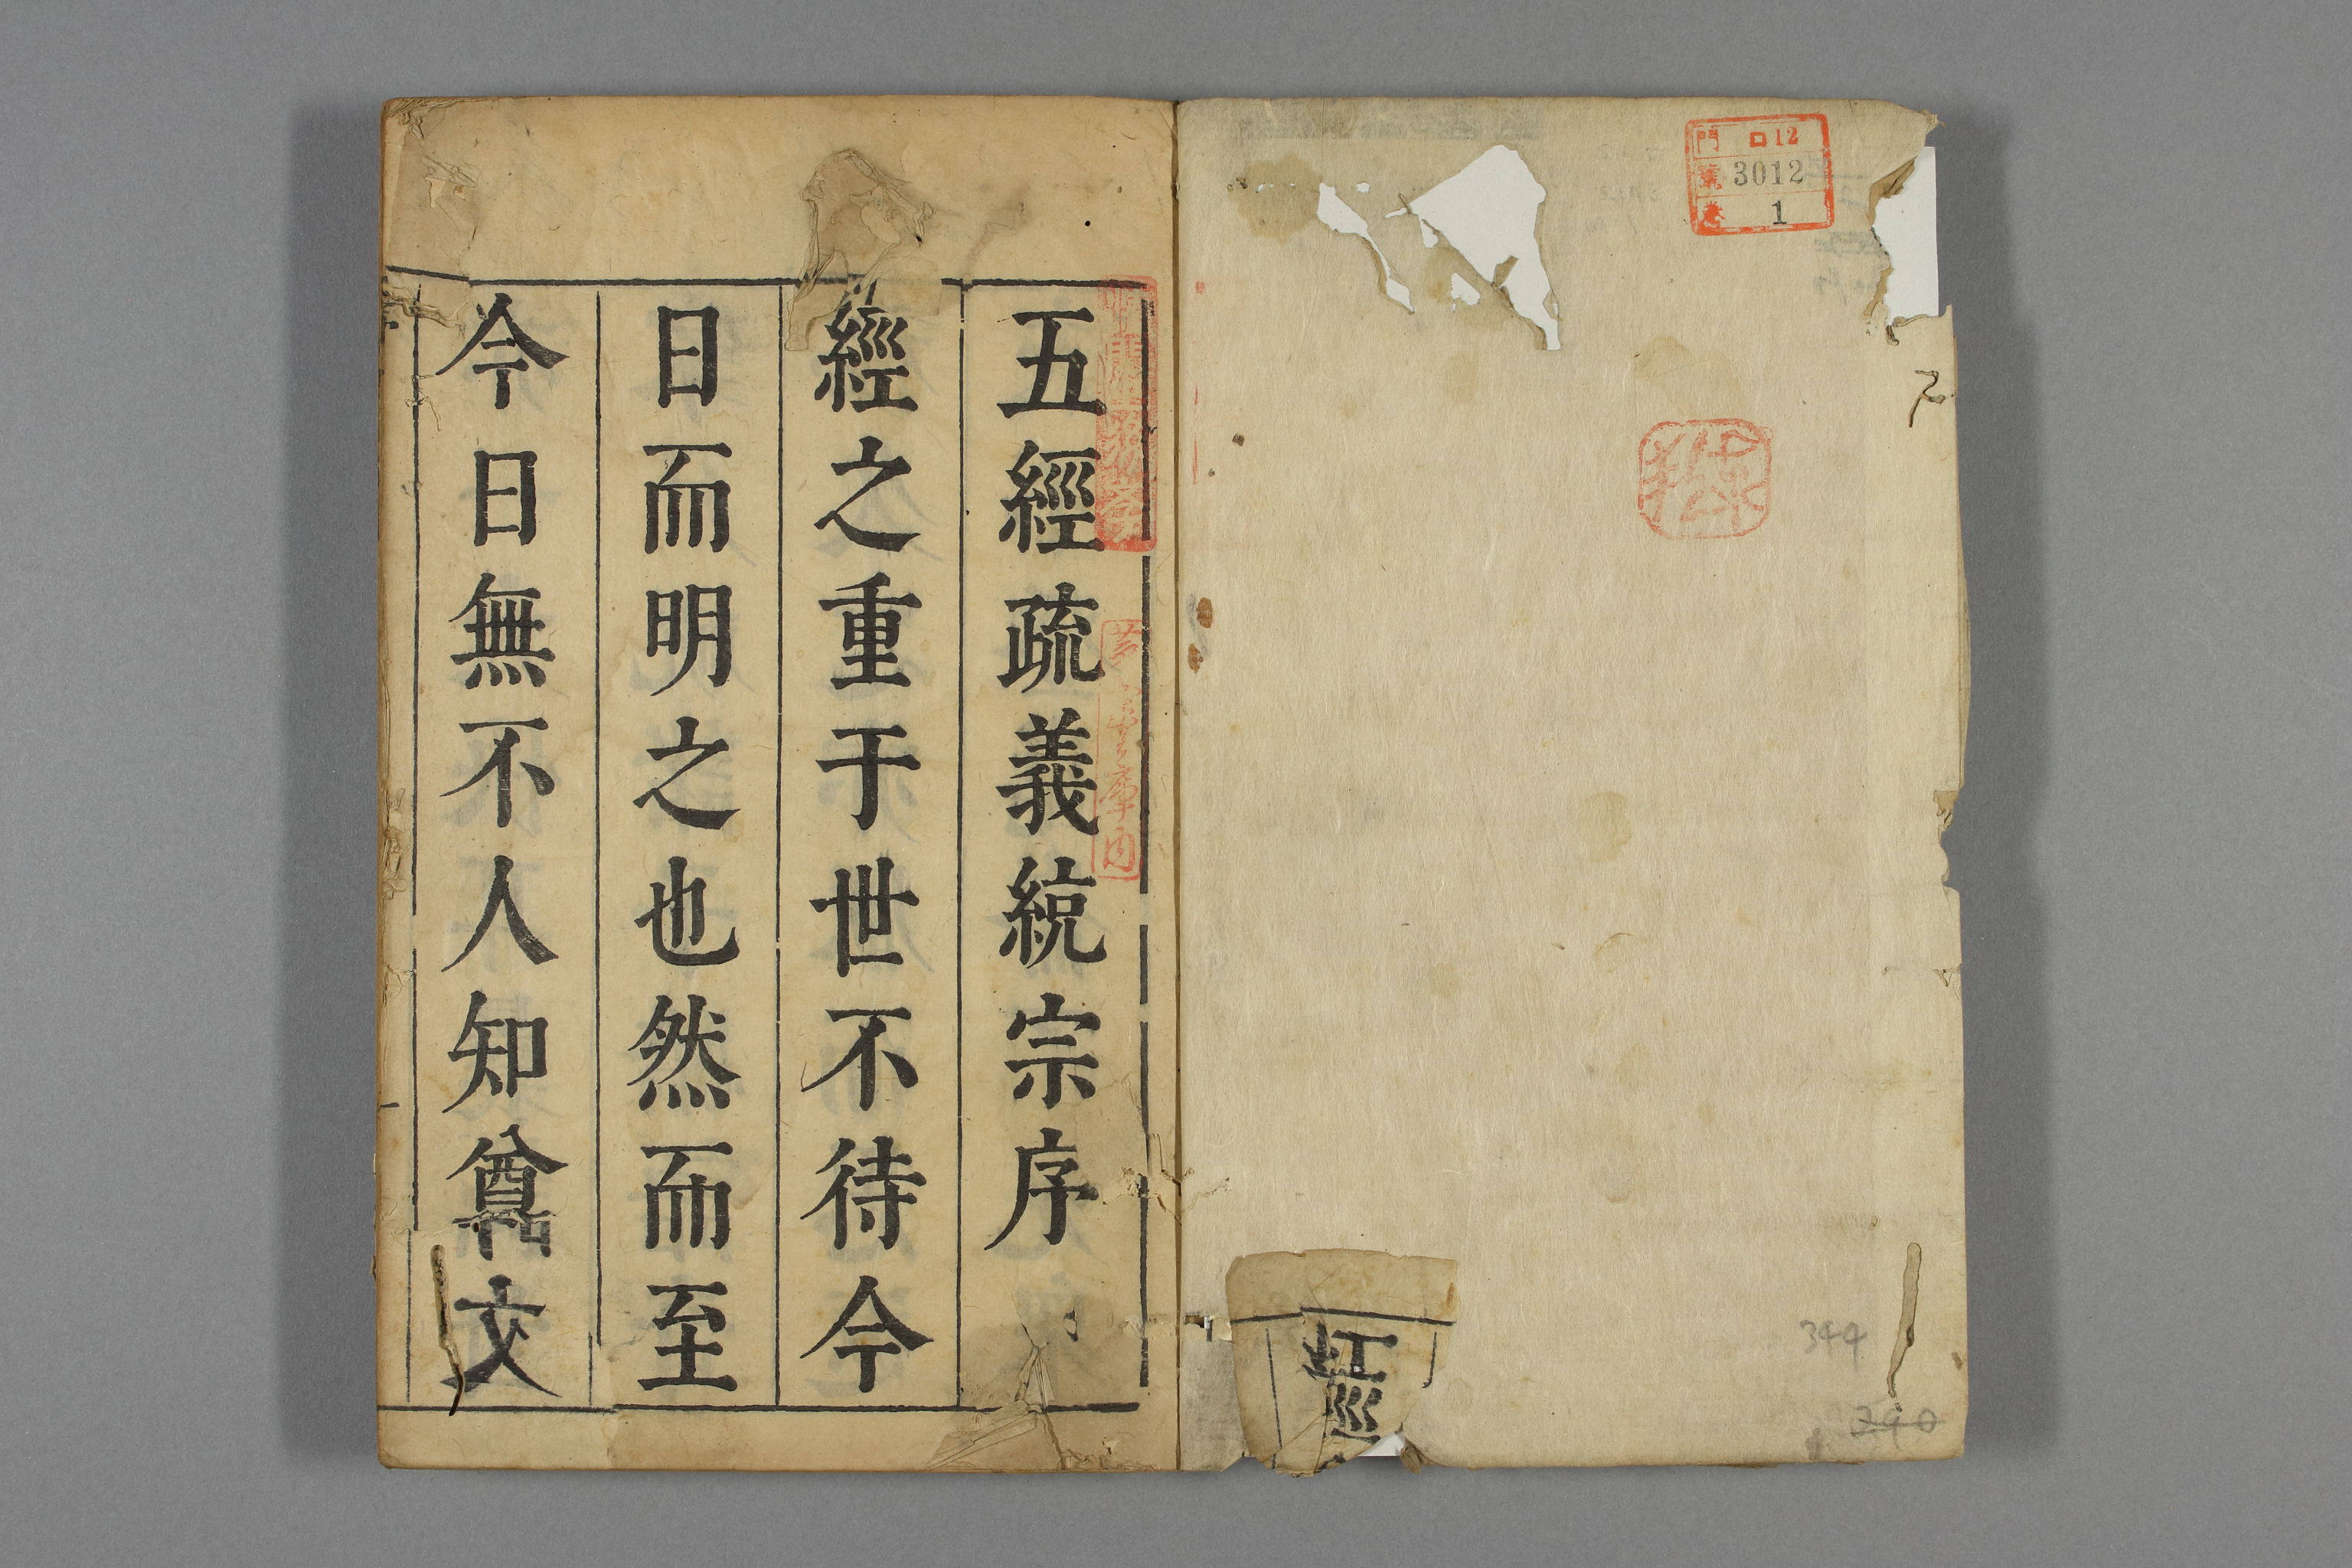 門 ロ12
號 3012
巻 1
344
390
經
五經疏義統宗序
經之重于世不待今
日而明之也然而至
今日無不人知尊文